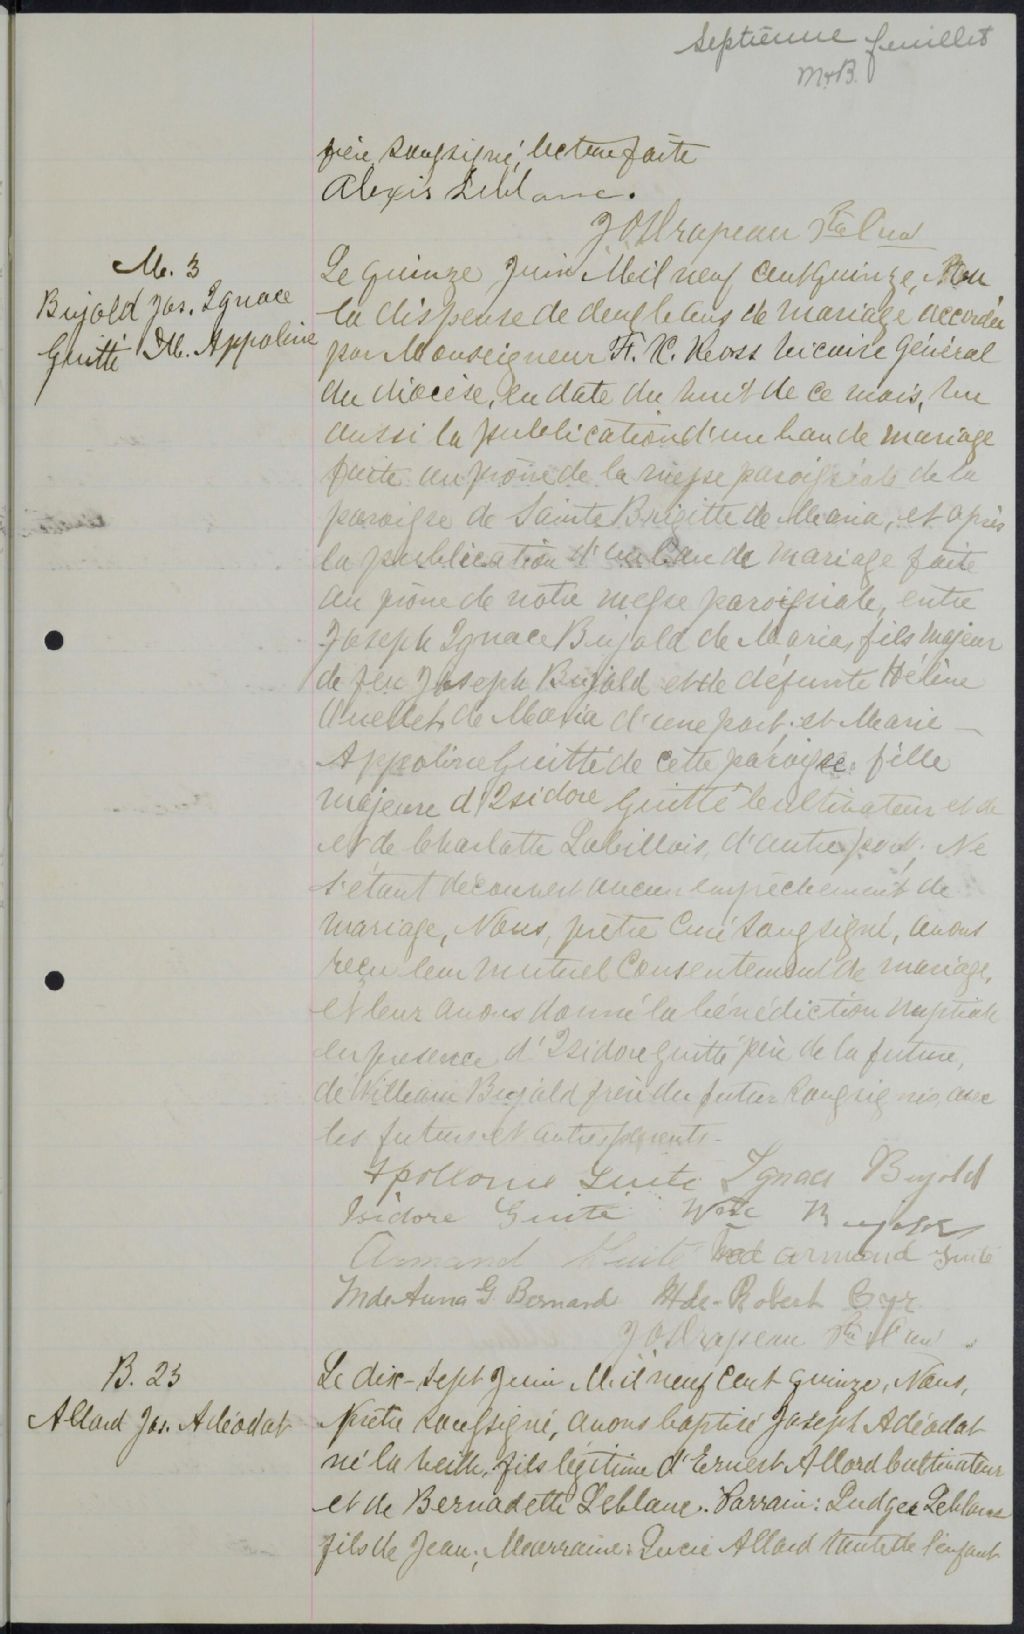 Septième feuillet
M.B.
père soussigné, lecture faite
Alexis Leblanc.
J O Drapeau Ptre Curé
M. 3
Bujold Jos. Ignace
Guitté M. Appoline
Le quinze Juin Mil neuf Cent quinze, Vu
la dispense de deux bans de mariage accordée
par Monseigneur F. X. Ross Vicaire Général
du diocèse, en date du huit de ce mois, Vu
aussi la publication d'un ban de mariage
faite au prône de la messe paroissiale de la
paroisse de Sainte Brigitte de Maria, et après
la publication d'un ban de mariage faite
au prône de notre messe paroissiale, entre
Joseph Ignace Bujold de Maria, fils majeur
de feu Joseph Bujold et de défunte Hélène
Ouellet de Maria d'une part; et Marie
Appoline Guitté de cette paroisse fille
majeure d'Isidore Guitté Cultivateur et de
et de Charlotte Labillois, d'autre part; Ne
s'étant découvert aucun empêchement de
mariage, Nous, prêtre Curé soussigné, avons
reçu leur mutuel Consentement de mariage,
et leur avons donné la bénédiction nuptiale
en présence d'Isidore Guitté père de la future,
de William Bujold frère du futur soussignés avec
les futurs et autres parents-
Apollonie Guite Ignace Bujold
Isidore Guité Bujold
Armand Guité armand Guité
Mde Anna G. Bernard Mde-Robert Cyr
J O Drapeau Ptre Curé
B. 23
Allard Jos. Adéodat
Le dix-sept Juin Mil neuf Cent quinze, Nous,
Prêtre soussigné, avons baptisé Joseph Adéodat
né la veille, fils légitime d'Ernest Allard Cultivateur
et de Bernadette Leblanc. Parrain: Ludger Leblanc
fils de Jean; Marraine: Lucie Allard tante de l'enfant